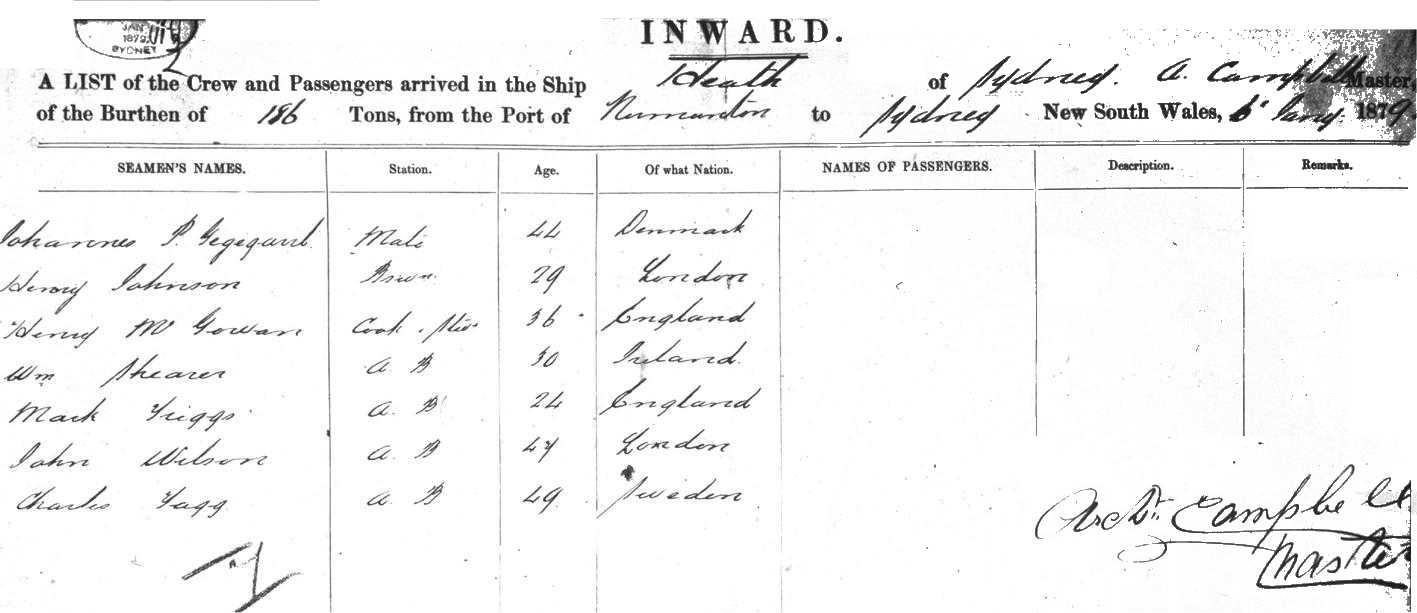 JAN
1879
SYDNEY
INWARD.
A LIST of the Crew and Passengers arrived in the Ship Heath of Sydney. A. Campbell Master,
of the Burthen of 186 Tons, from the Port of to Sydney New South Wales, 6th Jany. 1879.
SEAMEN'S NAMES. Station. Age. Of what Nation. NAMES OF PASSENGERS. Description. Remarks.
Johannes P. Mate 44 Denmark
Henry Johnson 29 London
Henry McGowan Cook & Stew 36 England
Wm Shearer A B 30 Ireland.
Mark Griggs A. B 24 England
John Wilson A. B 47 London
Charles A. B 49 Sweden
Archd. Campbell
Master
7